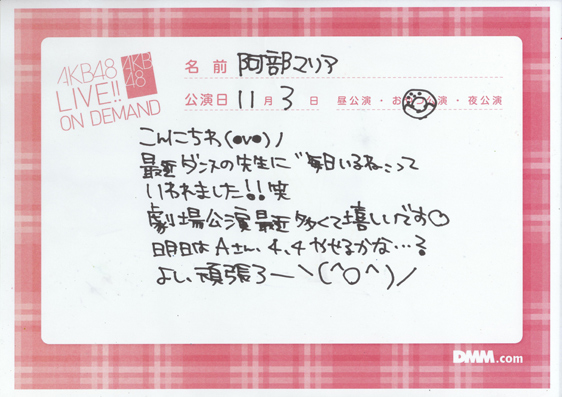 AKB48
LIVE!!
ON DEMAND
AKB
48
名前 阿部マリア
公演日 11月3日 昼公演・おやつ公演・夜公演
こんにちわ(●v●)ノ
最近ダンスの先生に"毎日いるね〟って
いわれました!!笑
劇場公演最近多くて嬉しいです♡
明日はAさん、4、4 やせるかな…?
よし、頑張ろー＼(^O^)／
DMM.com